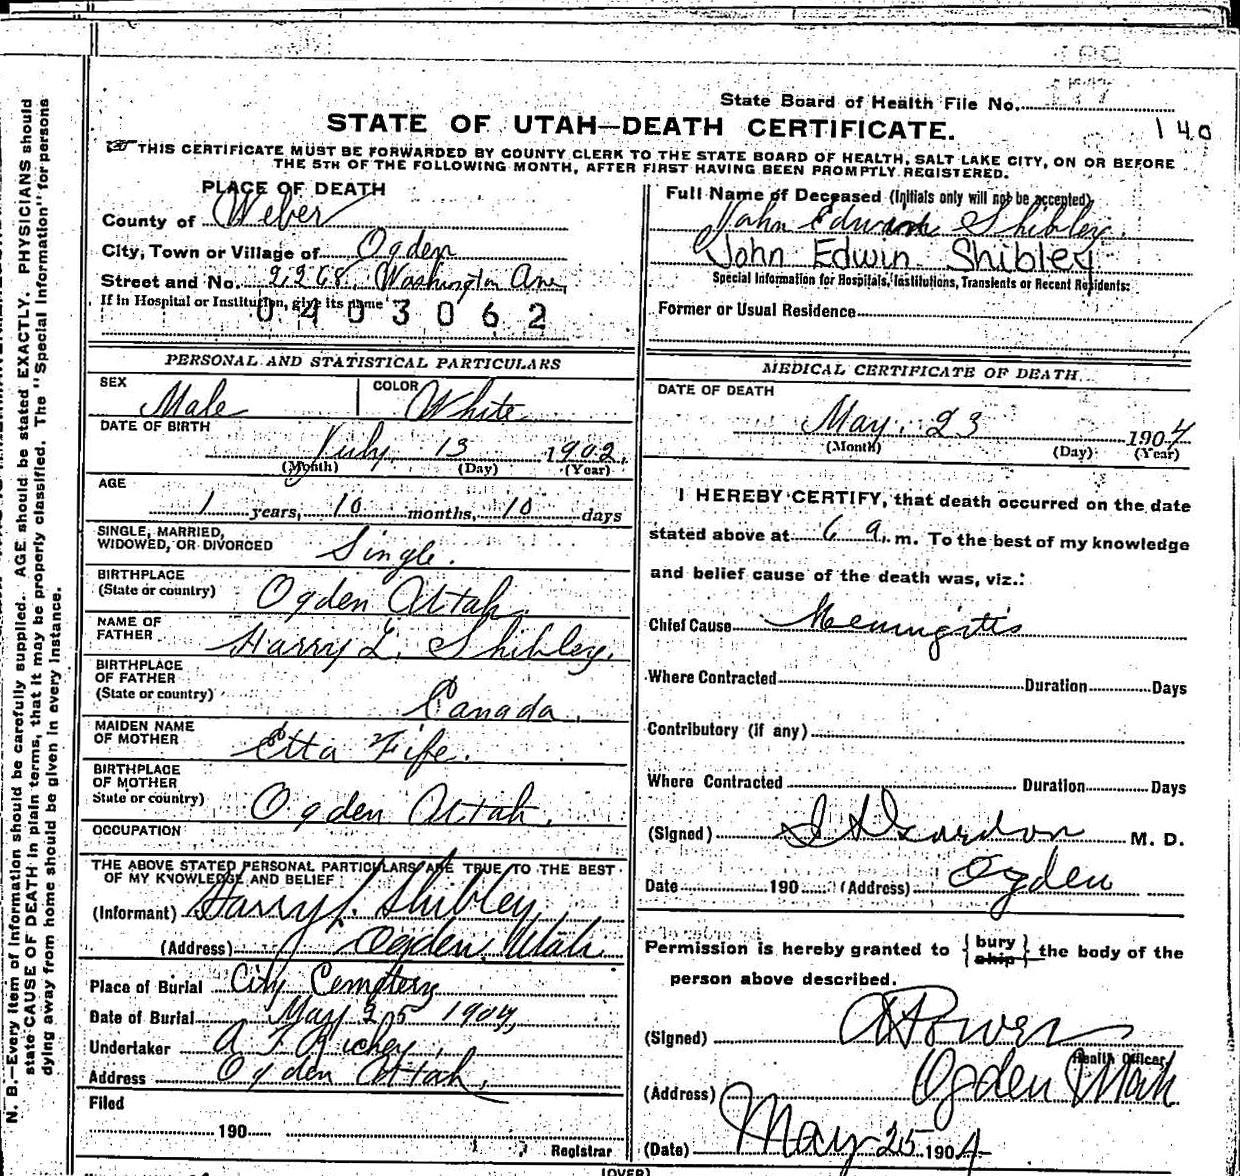 State Board of Health File No.
STATE OF UTAH—DEATH CERTIFICATE.
140
THIS CERTIFICATE MUST BE FORWARDED BY COUNTY CLERK TO THE STATE BOARD OF HEALTH, SALT LAKE CITY, ON OR BEFORE
THE 5TH OF THE FOLLOWING MONTH, AFTER FIRST HAVING BEEN PROMPTLY REGISTERED.
PLACE OF DEATH
County of Weber
City, Town or Village of Ogden
Street and No. 2268 Washington Ave,
If in Hospital or Institution, give its name
0403062
Full Name of Deceased (Initials only will not be accepted)
John Edwin Shibley.
John Edwin Shibley
Special Information for Hospitals, Institutions, Transients or Recent Residents:
Former or Usual Residence
PERSONAL AND STATISTICAL PARTICULARS
SEX Male COLOR White
DATE OF BIRTH
July 13 1902,
(Month) (Day) (Year)
AGE
1 years, 10 months, 10 days
SINGLE, MARRIED,
WIDOWED, OR DIVORCED Single.
BIRTHPLACE
(State or country) Ogden Utah.
NAME OF
FATHER Harry L. Shibley.
BIRTHPLACE
OF FATHER
(State or country) Canada.
MAIDEN NAME
OF MOTHER Etta Fife.
BIRTHPLACE
OF MOTHER
State or country) Ogden Utah.
OCCUPATION
THE ABOVE STATED PERSONAL PARTICULARS ARE TRUE TO THE BEST
OF MY KNOWLEDGE AND BELIEF
(Informant) Harry L. Shibley,
(Address) Ogden, Utah
Place of Burial City Cemetery
Date of Burial May 25 1904,
Undertaker A F Richey,
Address Ogden Utah,
Filed
190
Registrar
MEDICAL CERTIFICATE OF DEATH
DATE OF DEATH
May. 23 1904
(Month) (Day) (Year)
I HEREBY CERTIFY, that death occurred on the date
stated above at 6 a. m. To the best of my knowledge
and belief cause of the death was, viz.:
Chief Cause Meningitis
Where Contracted Duration Days
Contributory (if any)
Where Contracted Duration Days
(Signed) Gordon M. D.
Date 190 (Address) Ogden
Permission is hereby granted to { bury ship } the body of the
person above described.
(Signed) Powers
Health Officer
(Address) Ogden Utah
(Date) May 25 1904
(OVER)
N. B.—Every item of Information should be carefully supplied. AGE should be stated EXACTLY. PHYSICIANS should
state CAUSE OF DEATH in plain terms, that it may be properly classified. The "Special Information" for persons
dying away from home should be given in every instance.